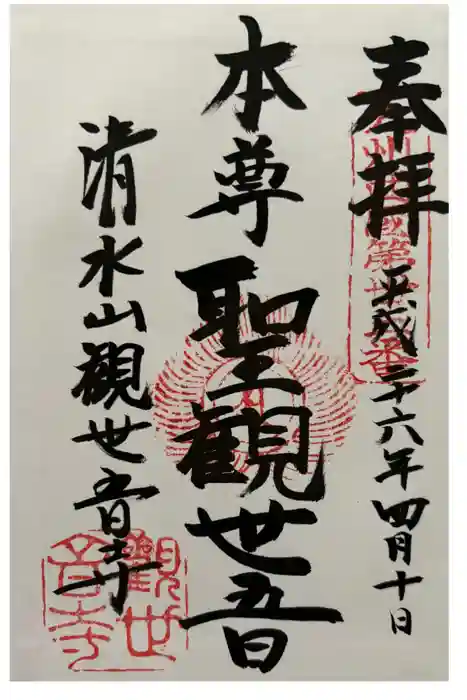 奉拝
平成二十六年四月十日
本尊
聖観世音
清水山観世音寺
観世
音寺